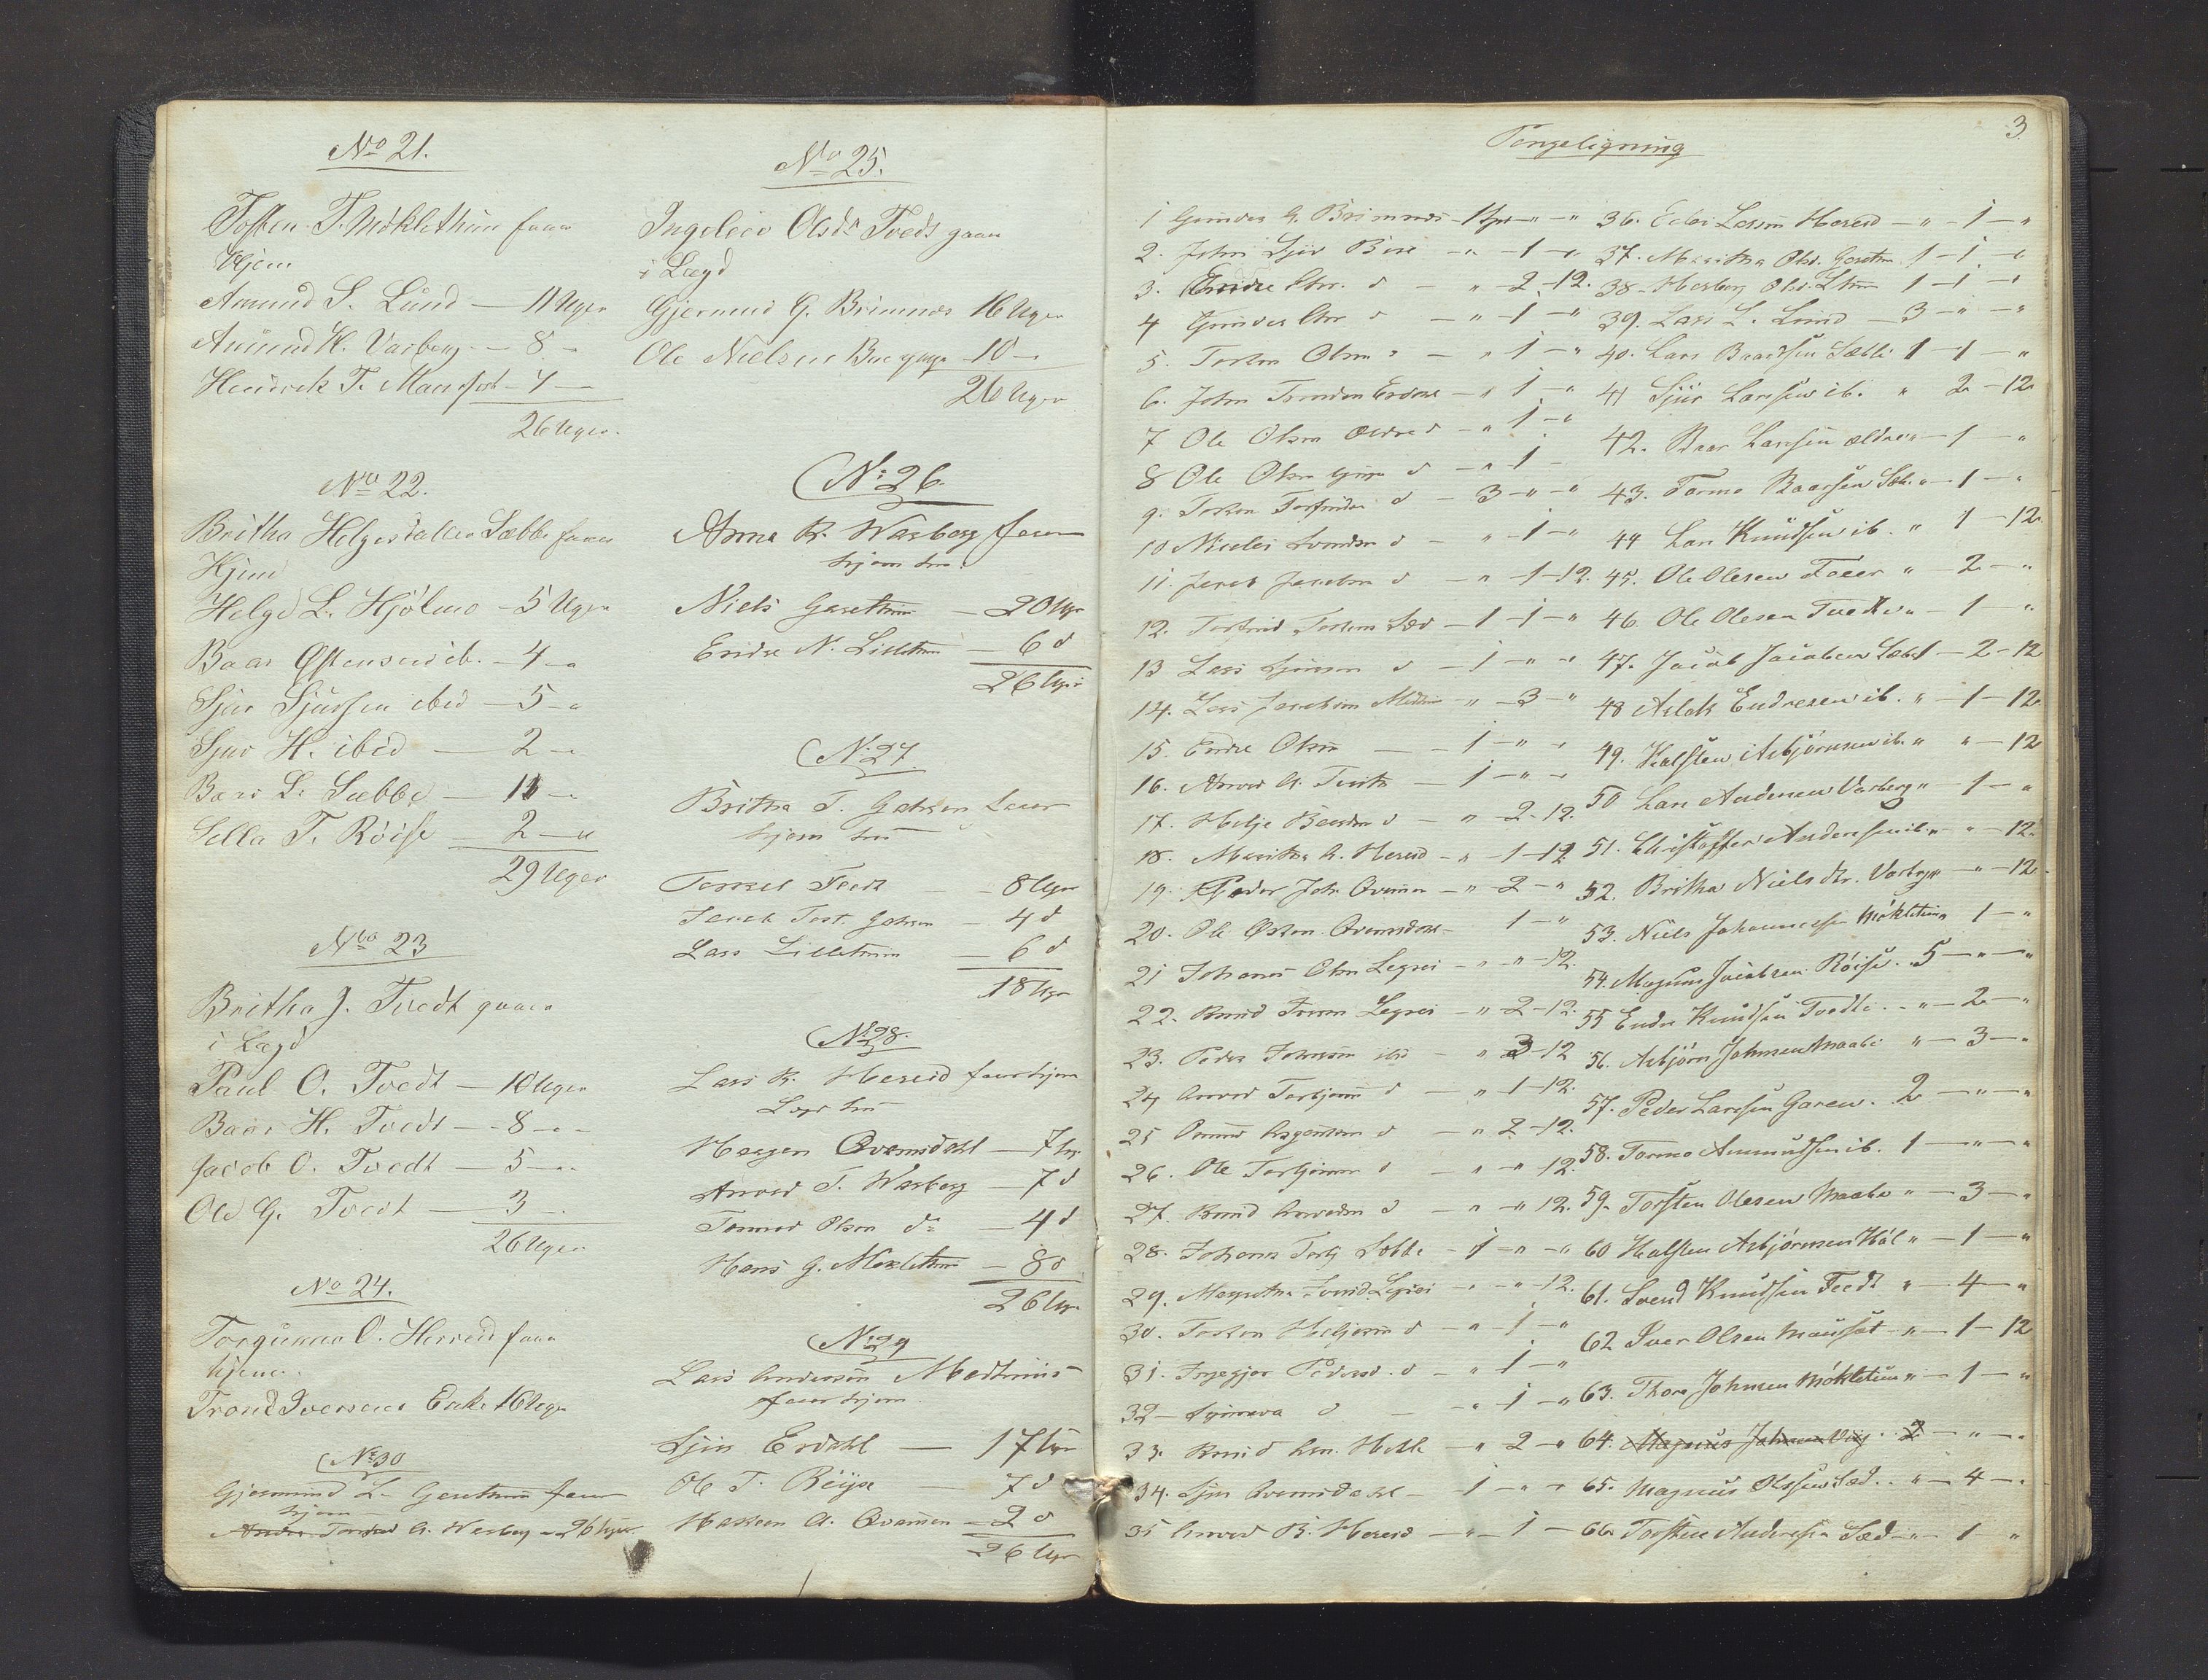 No 21.
Tosten T. Møklethun faaer
Hjem
Amund S. Lund — 11 Uger
Amund H. Varberg — 8 "
Hendrick T. Maursæt — 7 —
26 Uger.
No 22.
Britha Helgesdatter Sæbbe faaer
Hjem
Helge L. Hjølmo — 5 Uger
Baar Østensen ib. — 4 "
Sjur Sjursen ibid — 5 "
Sjur H. ibid — 2 "
Baar L. Sæbbe — 11 "
Sella T. Røise — 2 — "
29 Uger
No 23
Britha J. Tvedt gaaer
i Lægd
Paul O. Tvedt — 10 Uger
Baar H. Tvedt — 8 — "
Jacob O. Tvedt — 5 — "
Ole G. Tvedt — 3 — "
26 Uger
No 24.
Torgunna O. Herreid faaer
hjem.
Trond Iversens Enke 16 Uger
No 30
Gjermund L. Garethun faaer
hjem
Tormod A. Warberg — 26 Uger
No 25.
Ingeleiv Olsdr Tvedt gaaer
i Lægd
Gjermund G. Brimnes 16 Uger
Ole Nielsen Bue yngre 10 —
26 Uger
No 26.
Anna R. Warberg faaer
hjem hm.
Niels Garethun — 20 Uger
Endre N. Lillethun — 6 d
26 Uger
No 27.
Britha T. Garen faaer
hjem hm
Torkel Tvedt — 8 Uger
Jacob Tost. — 4 d
Lars Lillethun — 6 d
18 Uger
No 28.
Lars R. Hereid faaer hjem
Haagen Qvamsdahl — 7 Ug.
Amund T. Warberg — 7 d
Tormod Olsen do — 4 d
Hans G. Møklethun — 8 d
26 Uger
No 29
Lars Andersen Medthuus
faaer hjem.
Sjur Erdahl — 17 Uger
Ole T. Röyse — 7 d
Haakon A. Qvammen — 2 d
26 Uger
3
Pengeligning
1 Gunder G. Brimnes — 1 Spd — " — "
2. John Sjur Bue — " — 1 — "
3. Endre Chr. d — " — 2 — 12.
4 Gunder Chr d — " — 1 — "
5. Torsten Olsen d — " 1 — "
6. John Tronsen Erdahl — " 1 — "
7 Ole Olsen ældre d — " 1 — "
8 Ole Olsen yngre d — " 1 —
9. Torsten Torfinsen d — 3 — " — "
10 Nicolai Svendsen d — " — 1 — "
11. Jacob Jacobsen d — " — 1 — 12.
12. Torfind Torstens. Sæd — 1 — 1 — "
13 Lars Sjursen d — 1 — " — "
14. Lars Jacobsen — " — 3 — "
15. Endre Olsen — 1 — " — "
16. Amund A. Tveito — 1 — " — "
17. Helje Baardsen d — " 2 — 12.
18. Maritha A. Hereid — " — 1 — 12.
19. Peder Joh. Qvamen — " — 2 — "
20. Ole Østen. Qvamsdahl — 1 — "
21 Johannes Olsen Legrei — " — " — 12.
22. Knud Legrei — " 2 — 12.
23. Peder Johnsen ibid — " 3 — 12
24 Amund Torbjørn d — " 1 — 12.
25 d — " 2 — 12.
26. Ole Torbjørns. d — " — " 12.
27. Knud Amundsen d — " — " 12.
28. Johannes Torb. Sæbbe — 1 — " — "
29. Margretha Svend. Legrei — " — " — 12.
30. Torsten Heljesen d — " — 1 — "
31. Ingegjær Pedersd. d — " 1 — "
32 — d — " 1 — "
33. Knud Hotle — " 2 — "
34. Sjur Qvamsdahl — 1 — " — "
35 Amund B. Hereid — " — 1 —
36. Eilev Larsen Hereid — " — 1 — "
37. Maritha Olsd. Garethun 1 — 1 — "
38 — Herborg Olsd. 1 — 1 — "
39. Lars L. Lund — 3 — " — "
40. Lars Baardsen Sæbbe 1 — 1 — "
41 Sjur Larsen ib. " 2 — 12
42. Baar Larsen ældre " — 1 — "
43. Tormo Baarsen Sæb. " — 1 — "
44 Lars Knudsen ib. " 1 — 12.
45. Ole Olesen Foeer " — 2 — "
46. Ole Olesen Tvedt " — 1 — "
47. Jacob Jacobsen Sæbe 1 — 2 — 12
48 Aslak Endresen ib. " — 1 — 12
49. Halsten Asbjørnsen ib. " " — 12
50 Lars Andersen Varberg " — 1 — "
51. Christoffer Andersen ib. " " — 12
52. Britha Nielsdtr. Varberg " — " — 12
53. Niels Johannessen Møklethun 1 — "
54. Magnus Jacobsen Røise. . 5 — " — "
55 Endre Knudsen Tvedt. . " — 2 — "
56. Asbjørn Johnsen Maabø " — 3 — "
57. Peder Larsen Garen. 2 — " — "
58. Tormo Amundsen ib. 1 — " — "
59. Torsten Olesen Maabø " — 3 — "
60 Halsten Asbjørnsen Høl " — 1 — "
61. Svend Knudsen Tvedt " — 4 — "
62 Iver Olsen Maursæt — " — 1 — 12
63. Thore Johnsen Møklethun " — 1 — "
64. Magnus Johnsen Viig . . 2 — " — "
65. Magnus Olsen Sæd . . " — 4 — "
66. Torsten Andersen Sæd — " — 1 "